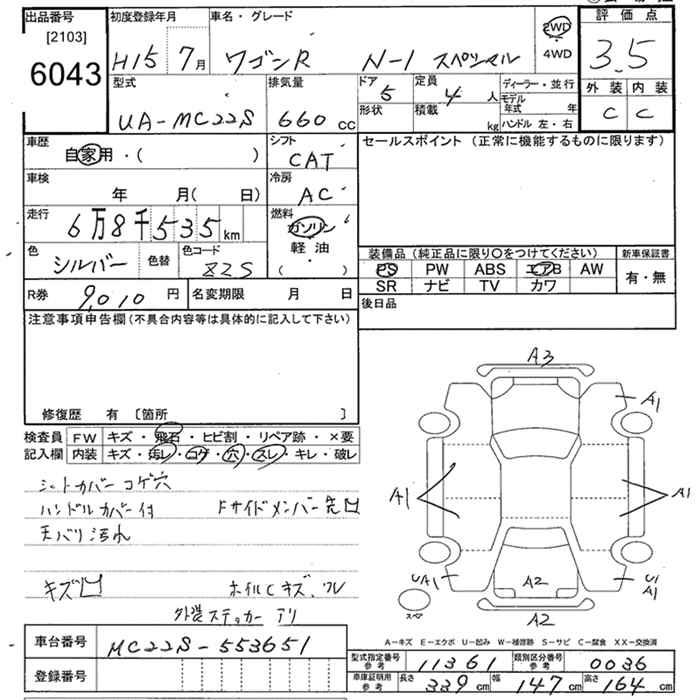 出品番号 初度登録年月 車名・グレード 2WD 評価点
[2103] H15 7月 ワゴンR N-1 スペシャル 4WD 3.5
6043 型式 排気量 ドア 定員 ディーラー・並行 外装 内装
UA-MC22S 660cc 5 4人 モデル年式 年 C C
形状 積載 kg ハンドル 左・右
車歴 シフト セールスポイント (正常に機能するものに限ります)
自家用・( ) CAT
車検 冷房
年 月( 日) AC
走行 燃料
6万8千535km ガソリン
色 色替 色コード 軽油 装備品(純正品に限り○をつけてください) 新車保証書
シルバー Z2S ( ・ ) PS PW ABS エアB AW 有・無
SR ナビ TV カワ
R券 9,010円 名変期限 月 日 後日品
注意事項申告欄(不具合内容等は具体的に記入して下さい)
A3
A1
修復歴 有 [箇所 ]
検査員 FW キズ・飛石・ヒビ割・リペア跡・×要
記入欄 内装 キズ・汚レ・コゲ・穴・スレ・キレ・破レ
シートカバー コゲ穴
A1 A1
ハンドルカバー付 Fサイドメンバー先凹
天バリ汚れ
キズ凹 ホイルCキズ、ワレ
UA1 A2 U1
A1
スペア
外装ステッカーアリ
A2
車台番号 MC22S-553651
A-キズ E-エクボ U-凹み W-補修跡 S-サビ C-腐食 XX-交換済
登録番号
型式指定番号 参考 11361 類別区分番号 参考 0036
車庫証明用 参考 長さ 339cm 幅 147cm 高さ 164cm